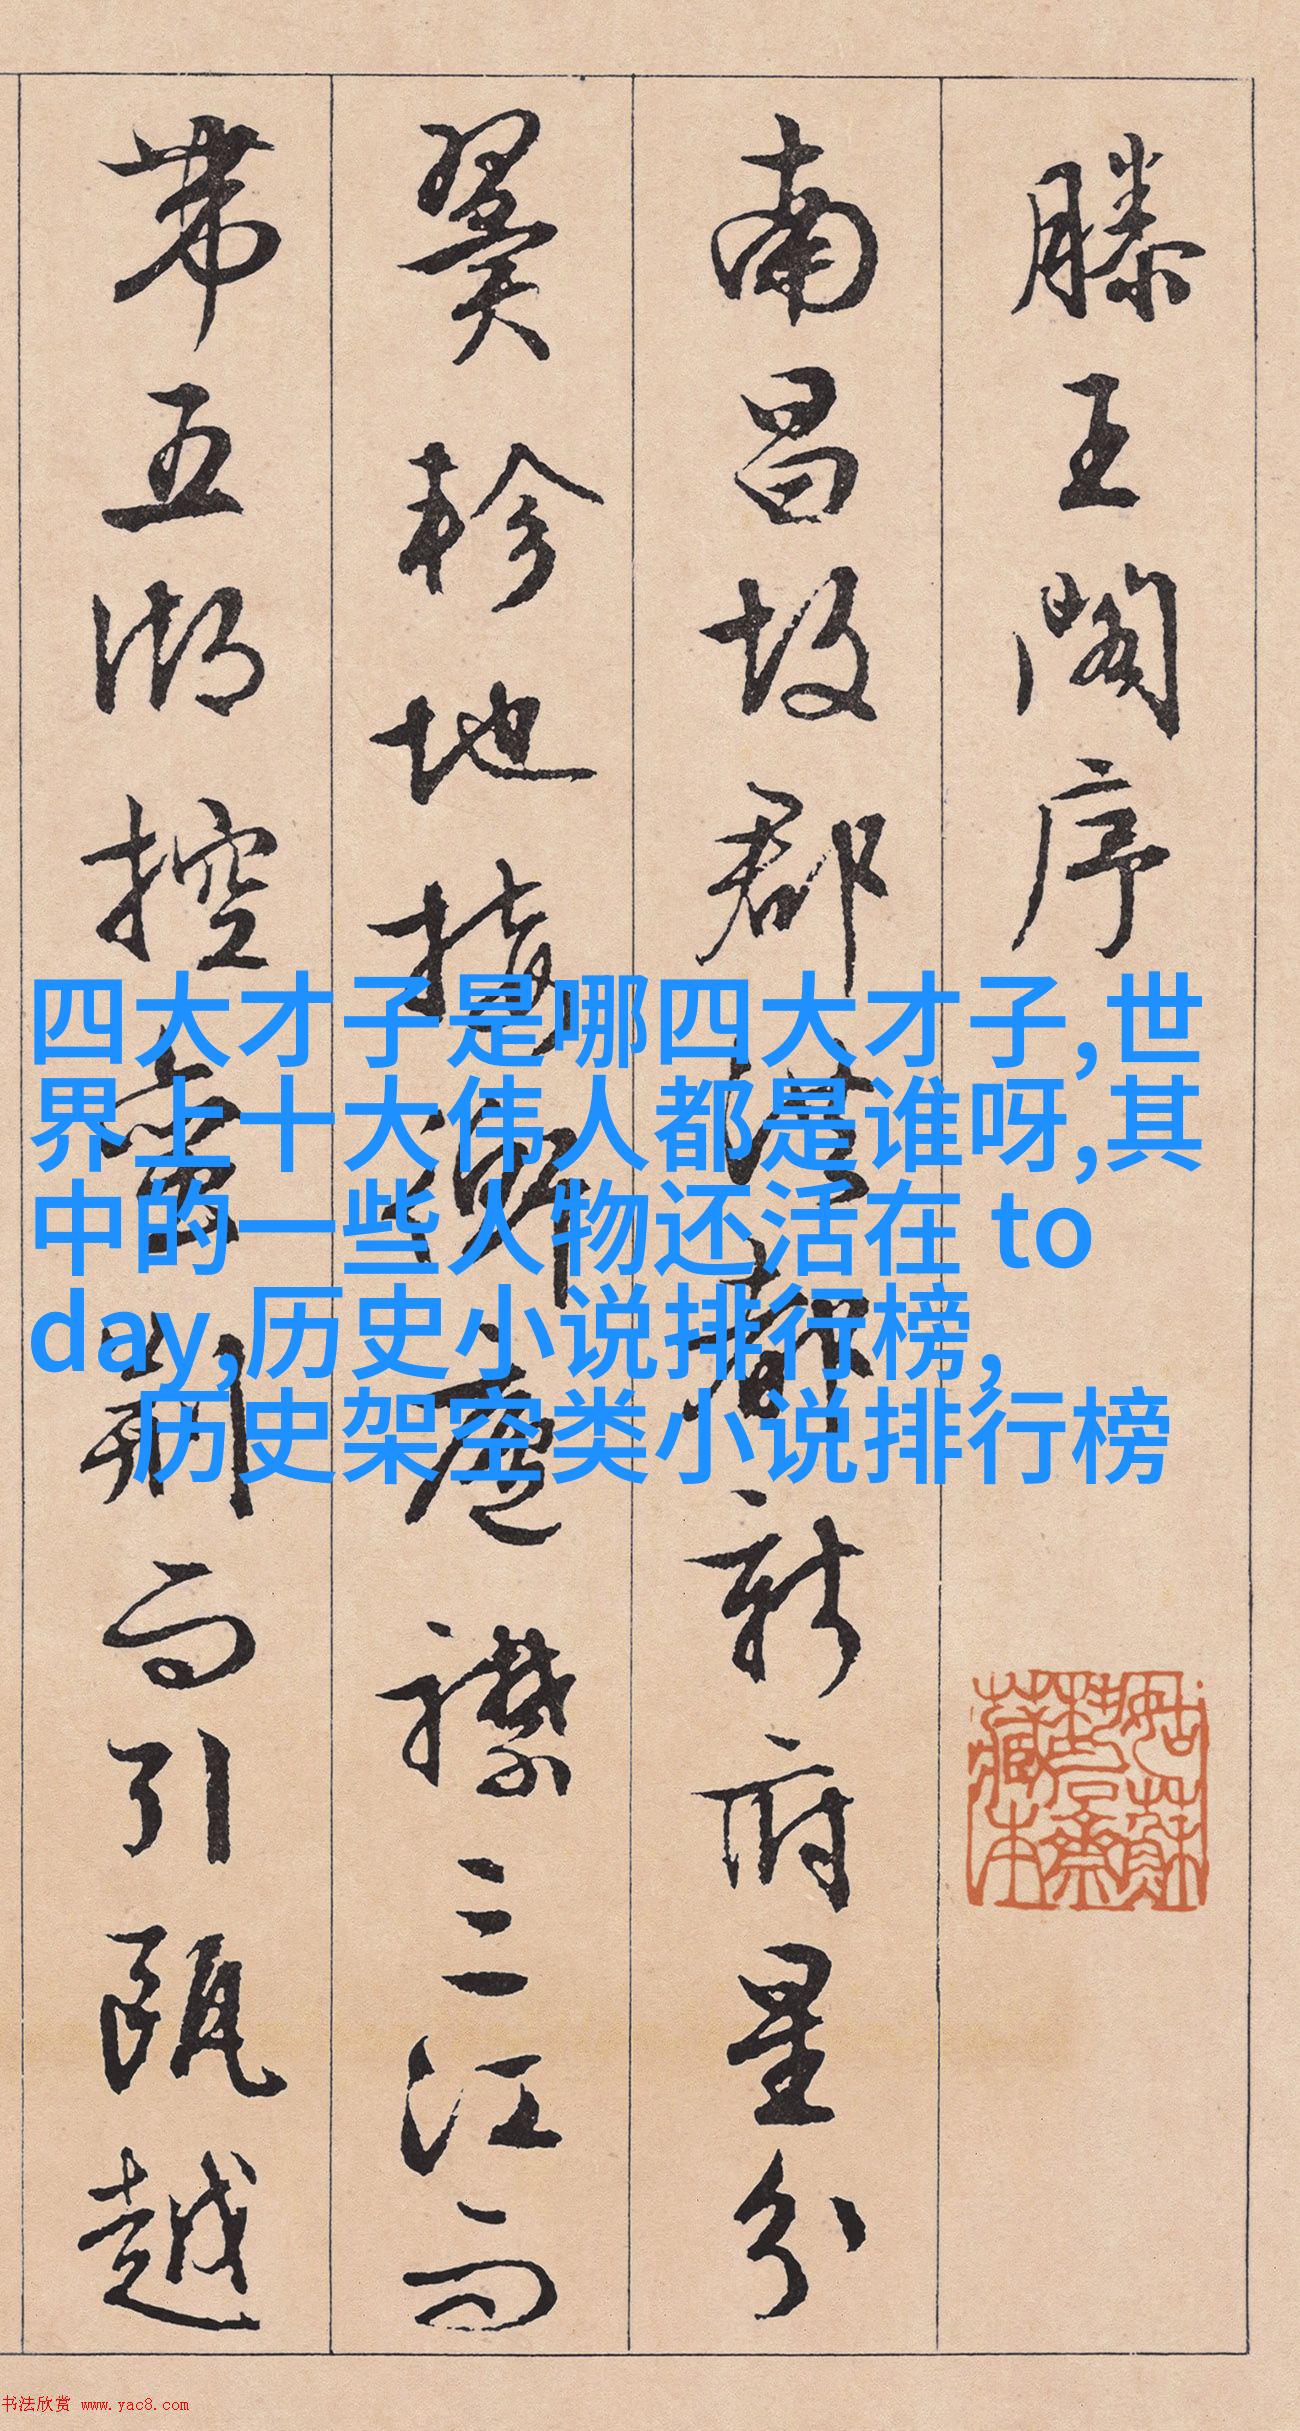 滕王阁序
南昌故郡洪都新府星分
翼轸地接衡庐襟三江而
带五湖控蛮荆而引瓯越
四大才子是哪四大才子,世
界上十大伟人都是谁呀,其
中的一些人物还活在 to
day,历史小说排行榜,
历史架空类小说排行榜
书法欣赏 www.yac8.com